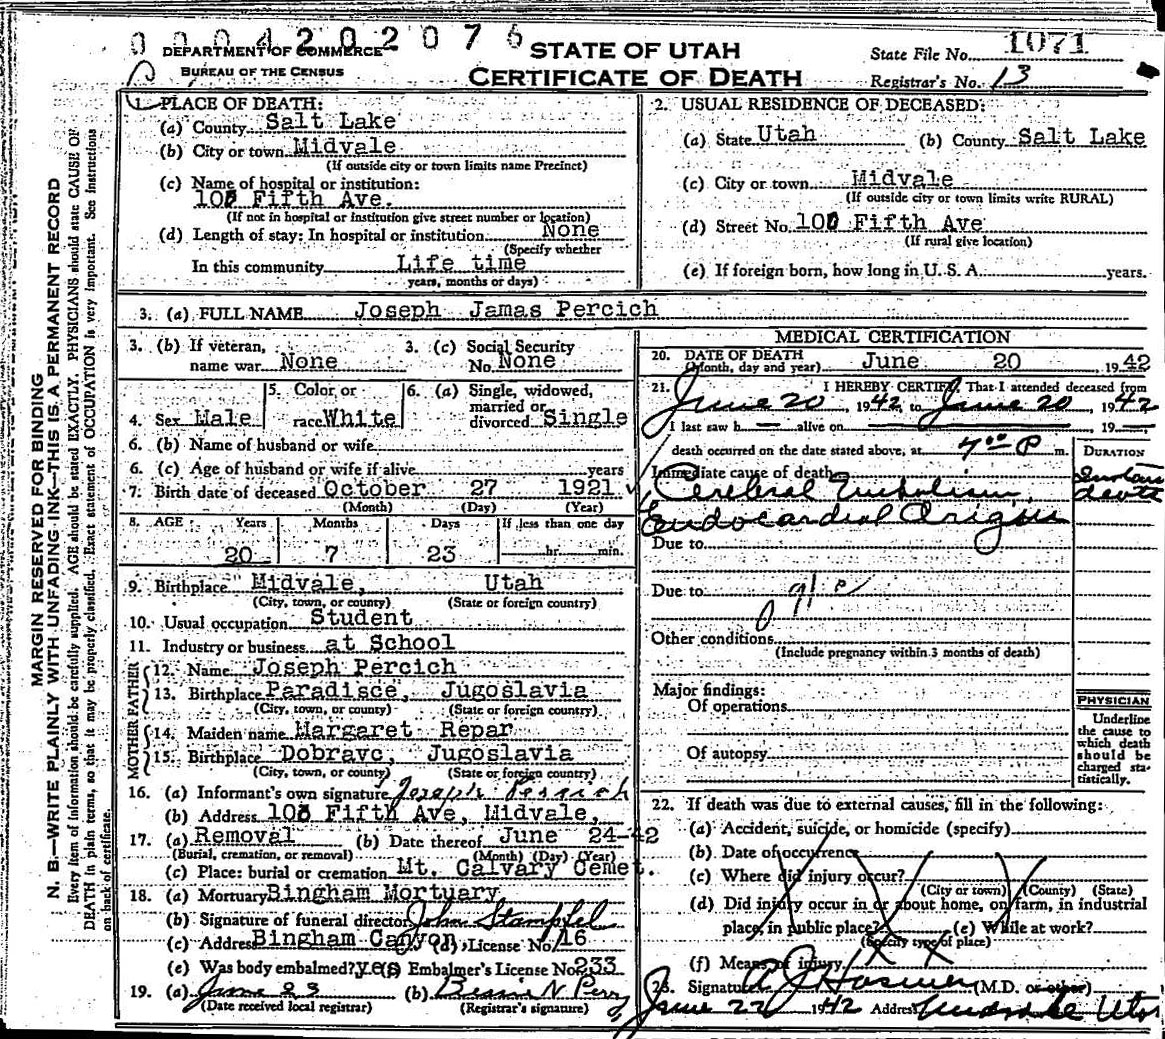 0 0 0 4 2 0 2 0 7 6
DEPARTMENT OF COMMERCE
BUREAU OF THE CENSUS
STATE OF UTAH
CERTIFICATE OF DEATH
State File No. 1071
Registrar's No. 13
MARGIN RESERVED FOR BINDING
N. B—WRITE PLAINLY WITH UNFADING INK—THIS IS A PERMANENT RECORD
Every item of information should be carefully supplied. AGE should be stated EXACTLY. PHYSICIANS should state CAUSE OF
DEATH in plain terms, so that it may be properly classified. Exact statement of OCCUPATION is very important. See Instructions
on back of certificate.
1. PLACE OF DEATH:
(a) County Salt Lake
(b) City or town Midvale
(If outside city or town limits name Precinct)
(c) Name of hospital or institution:
Fifth Ave.
(If not in hospital or institution give street number or location)
(d) Length of stay: In hospital or institution None
(Specify whether
In this community Life time
years, months or days)
2. USUAL RESIDENCE OF DECEASED:
(a) State Utah (b) County Salt Lake
(c) City or town Midvale
(If outside city or town limits write RURAL)
(d) Street No. Fifth Ave
(If rural give location)
(e) If foreign born, how long in U. S. A. years.
3. (a) FULL NAME Joseph Jamas Percich
3. (b) If veteran, 3. (c) Social Security
name war None No. None
4. Sex Male 5. Color or race White 6. (a) Single, widowed, married or divorced Single
6. (b) Name of husband or wife
6. (c) Age of husband or wife if alive years
7. Birth date of deceased October 27 1921
(Month) (Day) (Year)
8. AGE Years Months Days If less than one day
20 7 23 hr. min.
9. Birthplace Midvale, Utah
(City, town, or county) (State or foreign country)
10. Usual occupation Student
11. Industry or business at School
FATHER
12. Name Joseph Percich
13. Birthplace Paradisce, Jugoslavia
(City, town, or county) (State or foreign country)
MOTHER
14. Maiden name Margaret Repar
15. Birthplace Dobravc, Jugoslavia
(City, town, or county) (State or foreign country)
16. (a) Informant's own signature Joseph Percich
(b) Address Fifth Ave, Midvale,
17. (a) Removal (b) Date thereof June 24-42
(Burial, cremation, or removal) (Month) (Day) (Year)
(c) Place: burial or cremation Mt. Calvary Cemet.
18. (a) Mortuary Bingham Mortuary
(b) Signature of funeral director John Stampfel
(c) Address Bingham Canyon (d) License No. 116
(e) Was body embalmed? yes Embalmer's License No. 233
19. (a) June 23 (b) Bessie N Perry
(Date received local registrar) (Registrar's signature)
MEDICAL CERTIFICATION
20. DATE OF DEATH
(Month, day and year) June 20, 1942
21. I HEREBY CERTIFY, That I attended deceased from
June 20, 1942, to June 20, 1942
I last saw h — alive on — 19 —
death occurred on the date stated above, at 7 00 P m. DURATION
Immediate cause of death
Cerebral Embolism, Instant death
Endocardial Origin
Due to
Due to
Other conditions
(Include pregnancy within 3 months of death)
Major findings:
Of operations
Of autopsy
PHYSICIAN
Underline
the cause to
which death
should be
charged sta-
tistically.
22. If death was due to external causes, fill in the following:
(a) Accident, suicide, or homicide (specify)
(b) Date of occurrence
(c) Where did injury occur?
(City or town) (County) (State)
(d) Did injury occur in or about home, on farm, in industrial
place, in public place? (e) While at work?
(Specify type of place)
(f) Means of injury
23. Signature (M.D. or other)
June 22 1942 Address Midvale Utah